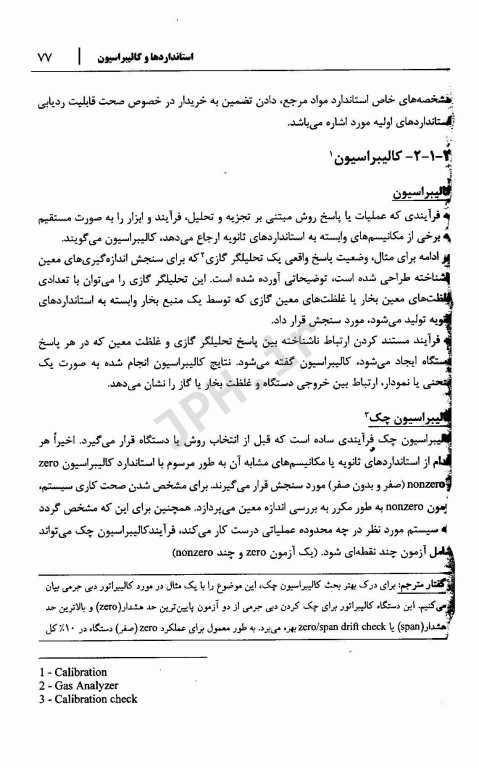 استانداردها و کالیبراسیون | ۷۷
مشخصه‌های خاص استاندارد مواد مرجع، دادن تضمین به خریدار در خصوص صحت قابلیت ردیابی
استانداردهای اولیه مورد اشاره می‌باشد.
۲-۱-۲- کالیبراسیون۱
کالیبراسیون
فرآیندی که عملیات یا پاسخ روش مبتنی بر تجزیه و تحلیل، فرآیند و ابزار را به صورت مستقیم
برخی از مکانیسم‌های وابسته به استانداردهای ثانویه ارجاع می‌دهد، کالیبراسیون می‌گویند.
در ادامه برای مثال، وضعیت پاسخ واقعی یک تحلیلگر گازی۲ که برای سنجش اندازه‌گیری‌های معین
ناشناخته طراحی شده است، توضیحاتی آورده شده است. این تحلیلگر گازی را می‌توان با تعدادی
غلظت‌های معین بخار یا غلظت‌های معین گازی که توسط یک منبع بخار وابسته به استانداردهای
ثانویه تولید می‌شود، مورد سنجش قرار داد.
فرآیند مستند کردن ارتباط ناشناخته بین پاسخ تحلیلگر گازی و غلظت معین که در هر پاسخ
دستگاه ایجاد می‌شود، کالیبراسیون گفته می‌شود. نتایج کالیبراسیون انجام شده به صورت یک
منحنی یا نمودار، ارتباط بین خروجی دستگاه و غلظت بخار یا گاز را نشان می‌دهد.
کالیبراسیون چک۳
کالیبراسیون چک فرآیندی ساده است که قبل از انتخاب روش یا دستگاه قرار می‌گیرد. اخیراً هر
کدام از استانداردهای ثانویه یا مکانیسم‌های مشابه آن به طور مرسوم با استاندارد کالیبراسیون zero
nonzero (صفر و بدون صفر) مورد سنجش قرار می‌گیرند. برای مشخص شدن صحت کاری سیستم،
آزمون nonzero به طور مکرر به بررسی اندازه معین می‌پردازد. همچنین برای این که مشخص گردد
سیستم مورد نظر در چه محدوده عملیاتی درست کار می‌کند، فرآیندکالیبراسیون چک می‌تواند
شامل آزمون چند نقطه‌ای شود. (یک آزمون zero و چند nonzero)
گفتار مترجم: برای درک بهتر بحث کالیبراسیون چک، این موضوع را با یک مثال در مورد کالیبراتور دبی جرمی بیان
می‌کنیم. این دستگاه کالیبراتور برای چک کردن دبی جرمی از دو آزمون پایین‌ترین حد هشدار(zero) و بالاترین حد
هشدار(span) یا zero/span drift check بهره می‌برد. به طور معمول برای عملکرد zero (صفر) دستگاه در ۱۰٪ کل
1 - Calibration
2 - Gas Analyzer
3 - Calibration check
JPH.ir